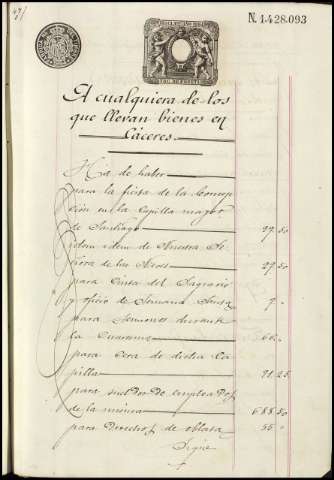 N. 1.428.093
A cualquiera de los
que llevan bienes en
Cáceres.
Ha de haber
para la fiesta de la Concep
ción en la Capilla mayor
de Santiago 29 50
idem idem de Nuestra Se
ñora de las 29 50
para Cinta del Sagrario
y oficio de Semana Santa 9 "
para sermones durante
la Cuaresma 60 "
para Cera de dicha Ca
pilla 91 25
para de empleados
de la música 688 50
para Derechos de 55 "
Sigue